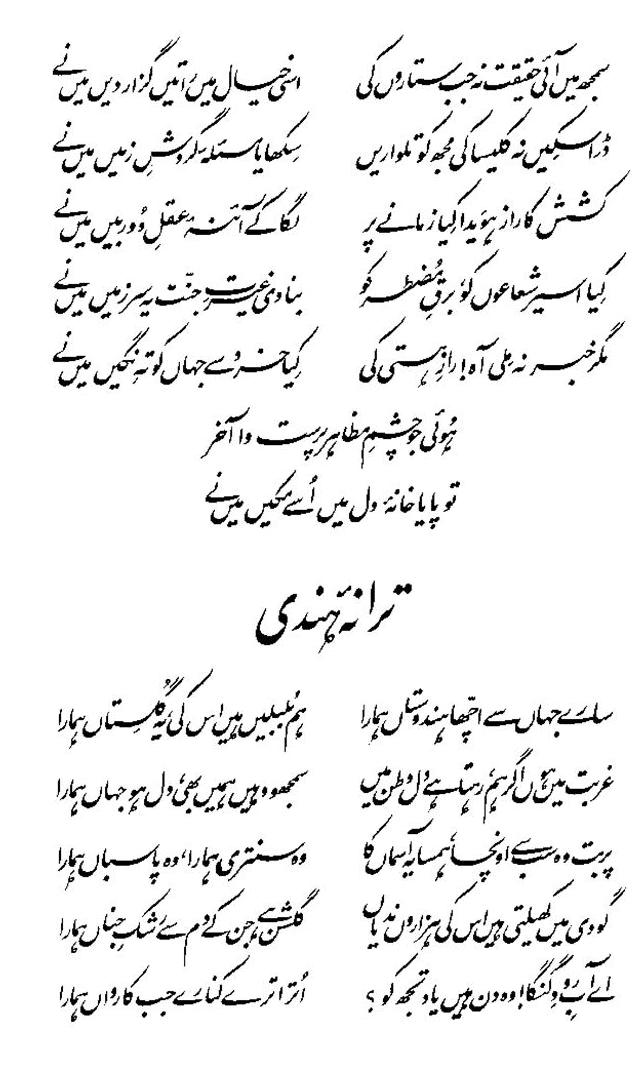 سمجھ میں آئی حقیقت نہ جب ستاروں کی اسی خیال میں راتیں گزار دیں میں نے
ڈرا سکیں نہ کلیسا کی مجھ کو تلواریں سکھایا مسئلۂ گردشِ زمیں میں نے
کشش کا راز ہویدا کیا زمانے پر لگا کے آئنۂ عقلِ دُور بیں میں نے
کیا اسیر شعاعوں کو، برقِ مُضطر کو بنا دی غیرتِ جنّت یہ سرزمیں میں نے
مگر خبر نہ ملی آہ! رازِ ہستی کی کیا خرد سے جہاں کو تہِ نگیں میں نے
ہُوئی جو چشمِ مظاہر پرست وا آخر
تو پایا خانۂ دل میں اُسے مکیں میں نے
ترانۂ ہندی
سارے جہاں سے اچھّا ہندوستاں ہمارا ہم بُلبلیں ہیں اس کی، یہ گُلِستاں ہمارا
غربت میں ہوں اگر ہم، رہتا ہے دل وطن میں سمجھو وہیں ہمیں بھی، دل ہو جہاں ہمارا
پربت وہ سب سے اونچا، ہمسایہ آسماں کا وہ سنتری ہمارا، وہ پاسباں ہمارا
گودی میں کھیلتی ہیں اس کی ہزاروں ندیاں گلشن ہے جن کے دم سے رشکِ جناں ہمارا
اے آبِ رودِ گنگا! وہ دن ہیں یاد تجھ کو؟ اُترا ترے کنارے جب کارواں ہمارا